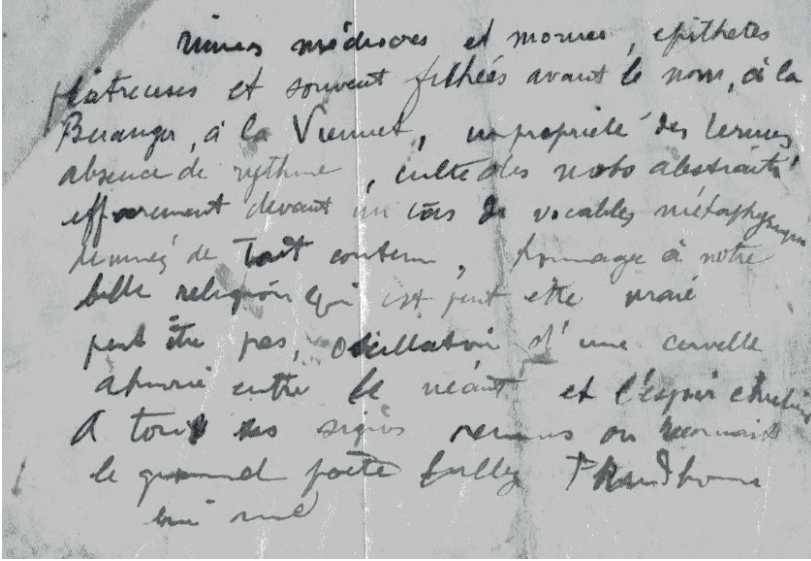 rimes médiocres et mornes, epithetes
platreuses et souvent fichées avant le nom, à la
Beranger, à la Viennet, impropriété des termes
absence de rythme, culte des mots abstraits
effarement devant un tas de vocables métaphysiques
denués de tout contenu, hommage à notre
belle religion qui est peut etre vraie
peut être pas, oscillation d'une cervelle
entre le néant et l'espoir
A tous ces signes on reconnait
le grand poète Sully Prudhomme